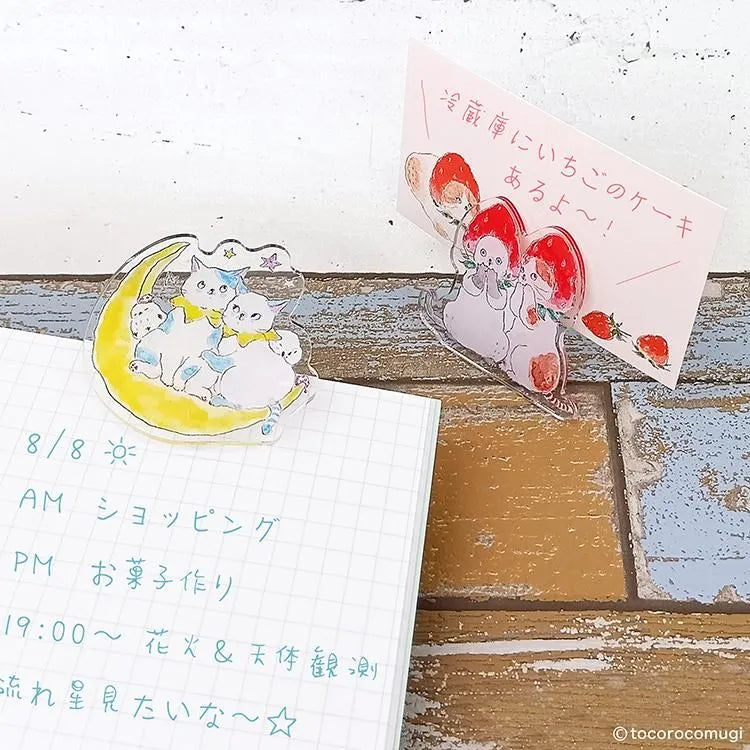 冷蔵庫にいちごのケーキ
あるよ〜!
8/8
AM ショッピング
PM お菓子作り
19:00〜 花火&天体観測
流れ星見たいな〜☆
©tocorocomugi